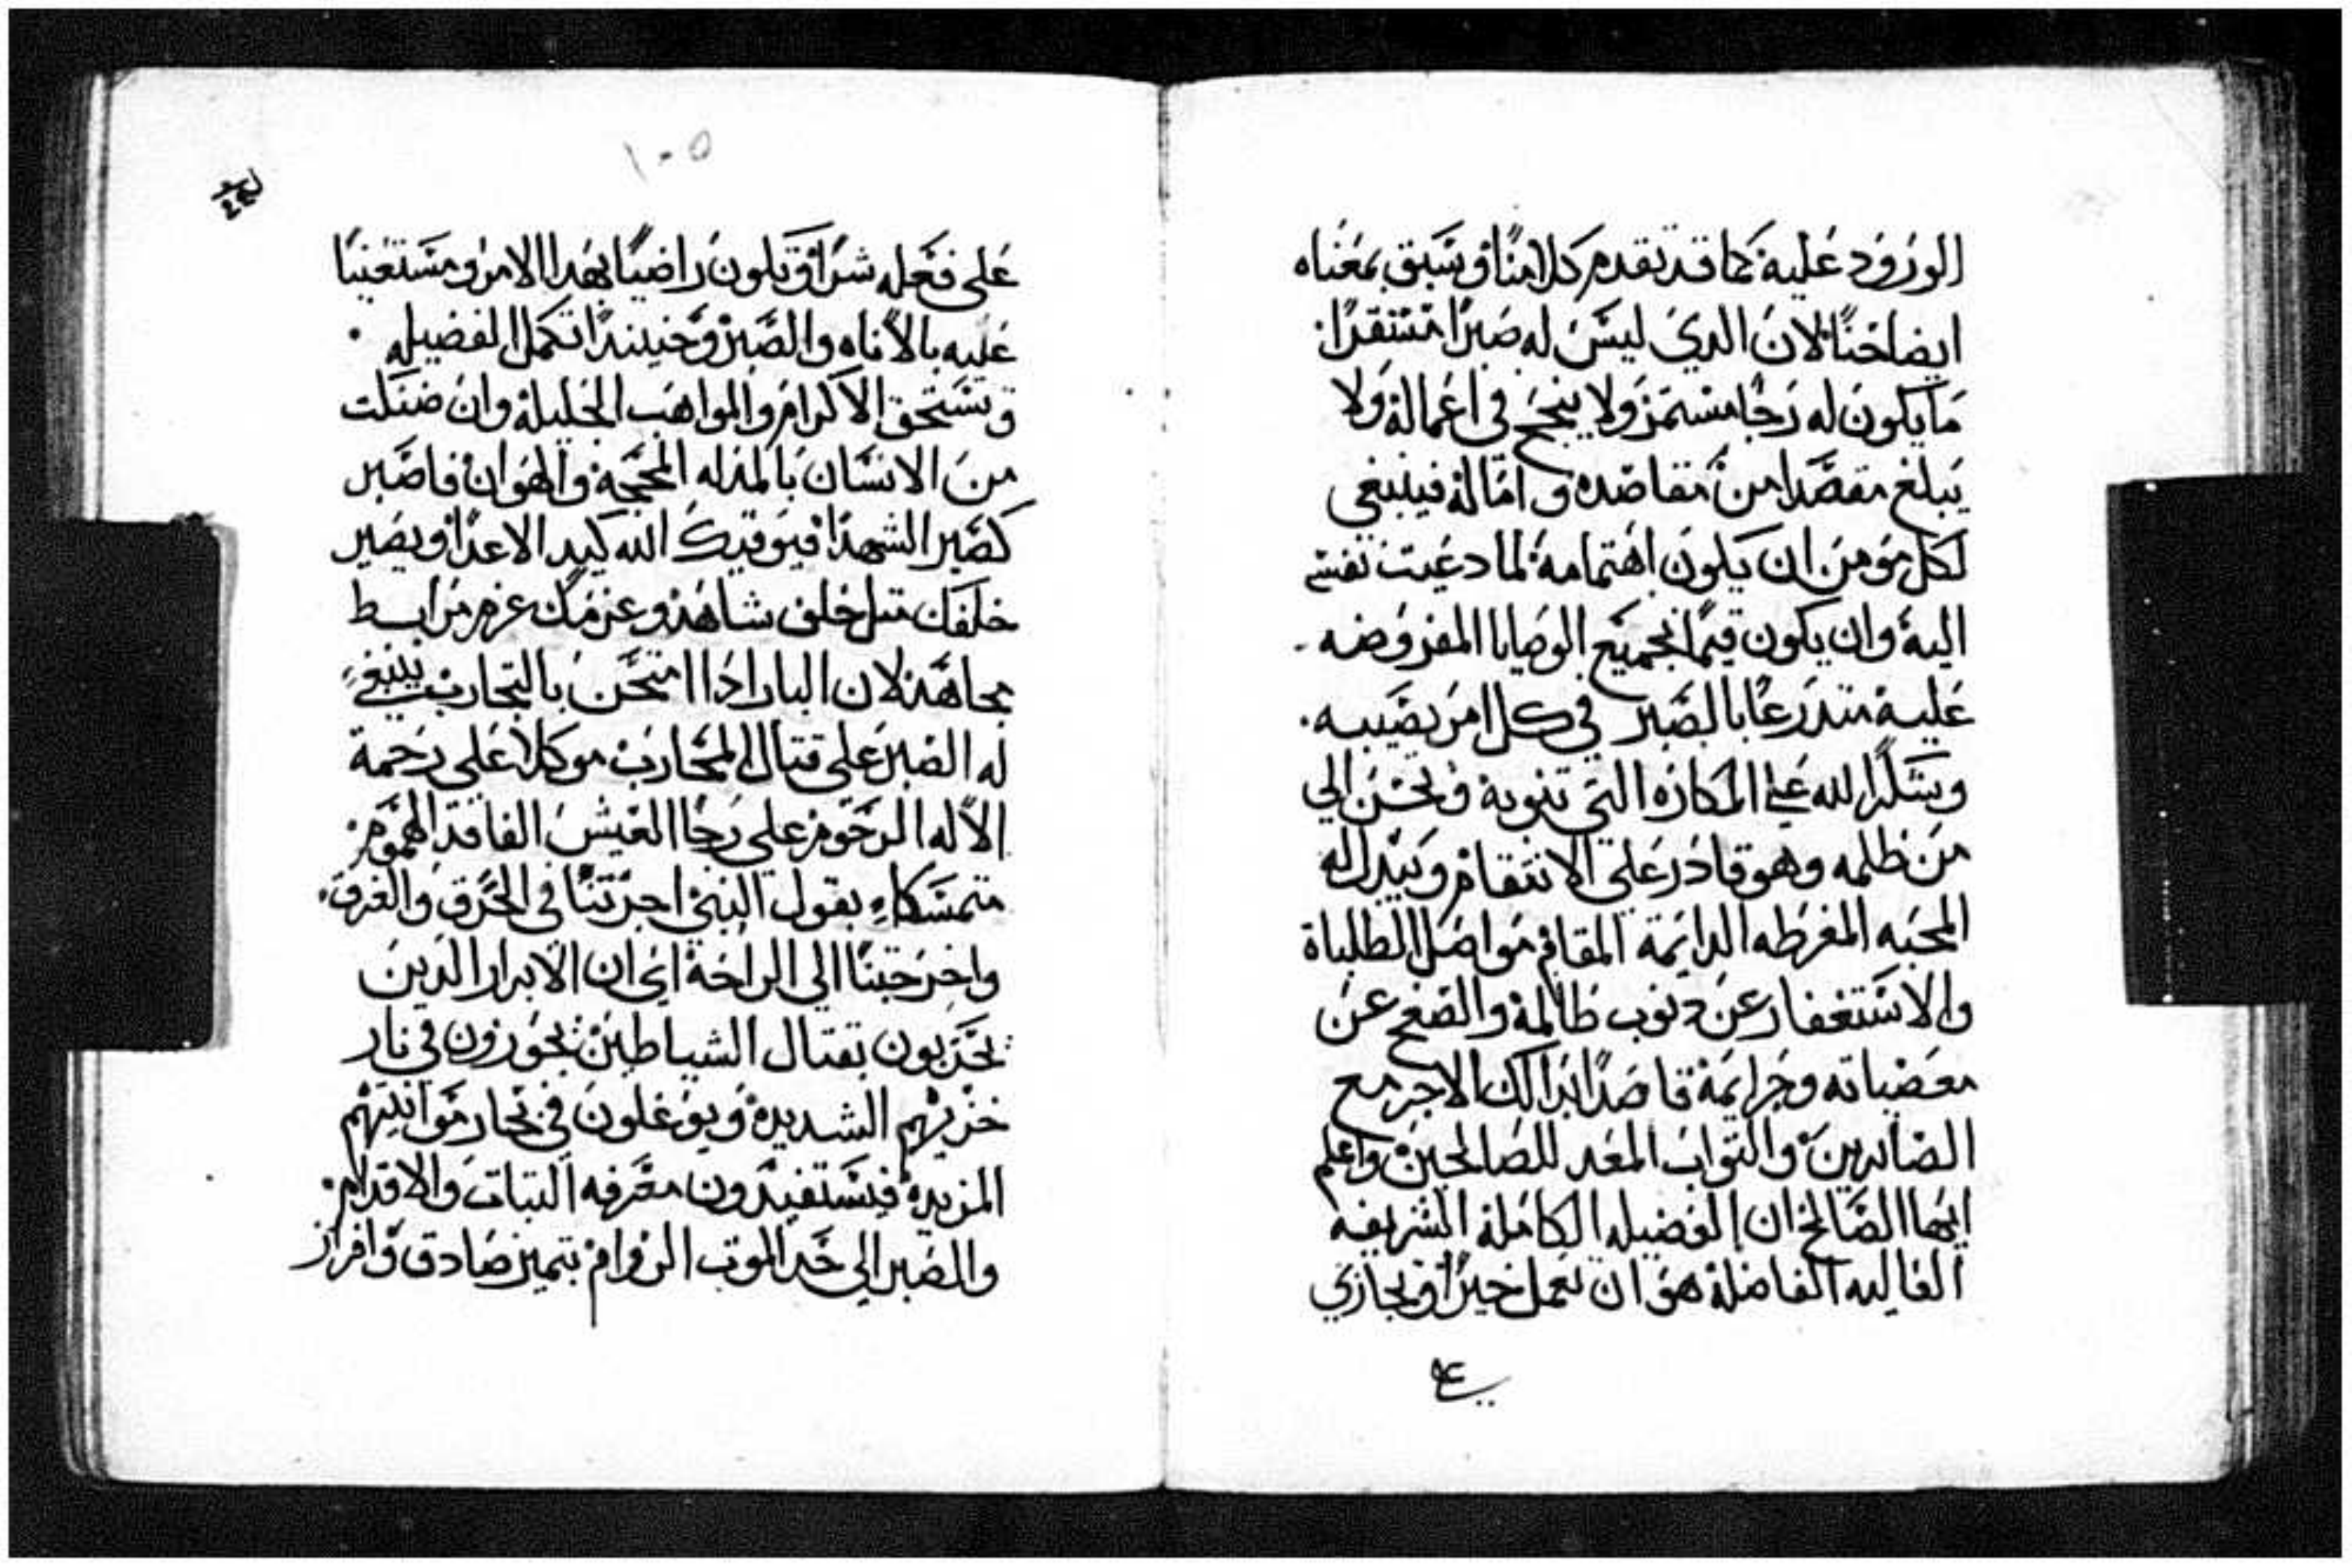 الورود عليه كما قد تقدم كلامنا وسبق بمعناه
ايضاحنا لان الدي ليس له صبرا مستقرا
ما يكون له رجا مستمر ولا ينجح في اعماله ولا
يبلغ مقصدا من مقاصده واماله فينبغي
لكل مومن ان يكون اهتمامه لما دعيت نفسه
اليه وان يكون قيما بجميع الوصايا المفروضه
عليه متدرعا بالصبر في كل امر يصيبه
ويشكر الله علي المكاره التي تنوبه ويحسن الي
من ظلمه وهو قادر علي الانتقام ويبدل له
المحبه المفرطه الدايمة المقام مواصل الطلباة
والاستغفار عن دنوب ظالمة والصفح عن
معصياته وجرايمة قاصدا بدالك الاجر مع
الصابرين والتواب المعد للصالحين واعلم
ايها الصالح ان الفضيله الكاملة الشريفه
العاليه الفاضلة هو ان تعمل خيرا وتجازي
عل
١٠٥
على فعله شرا وتكون راضيا بهدا الامر ومستعينا
عليه بالاناه والصبر وحينيدا تكمل الفضيله
وتستحق الاكرام والمواهب الجليلة وان ضنكت
من الانسان بالمذله المحجة والهوان فاصبر
كصبر الشهدا فيوقيك الله كيد الاعدا ويصير
خلفك متل خلف شاهد وعزمك عزم مرابط
مجاهد لان البار ادا امتحن بالتجارب ينبغي
له الصبر على قتال المحارب موكلا على رحمة
الاله الرحوم على رجا العيش الفاقد الهموم
متمسكا بقول النبي اجزتنا في الحرق والغرق
واخرجتنا الي الراحة اي ان الابرار الدين
يحزبون بقتال الشياطين يجوزون في نار
حزبهم الشديدة ويوغلون في بحار مواثبتهم
المزبدة فيستفيدون معرفه التبات والاقدام
والصبر الي حد الموت الزوام بتميز صادق وافراز